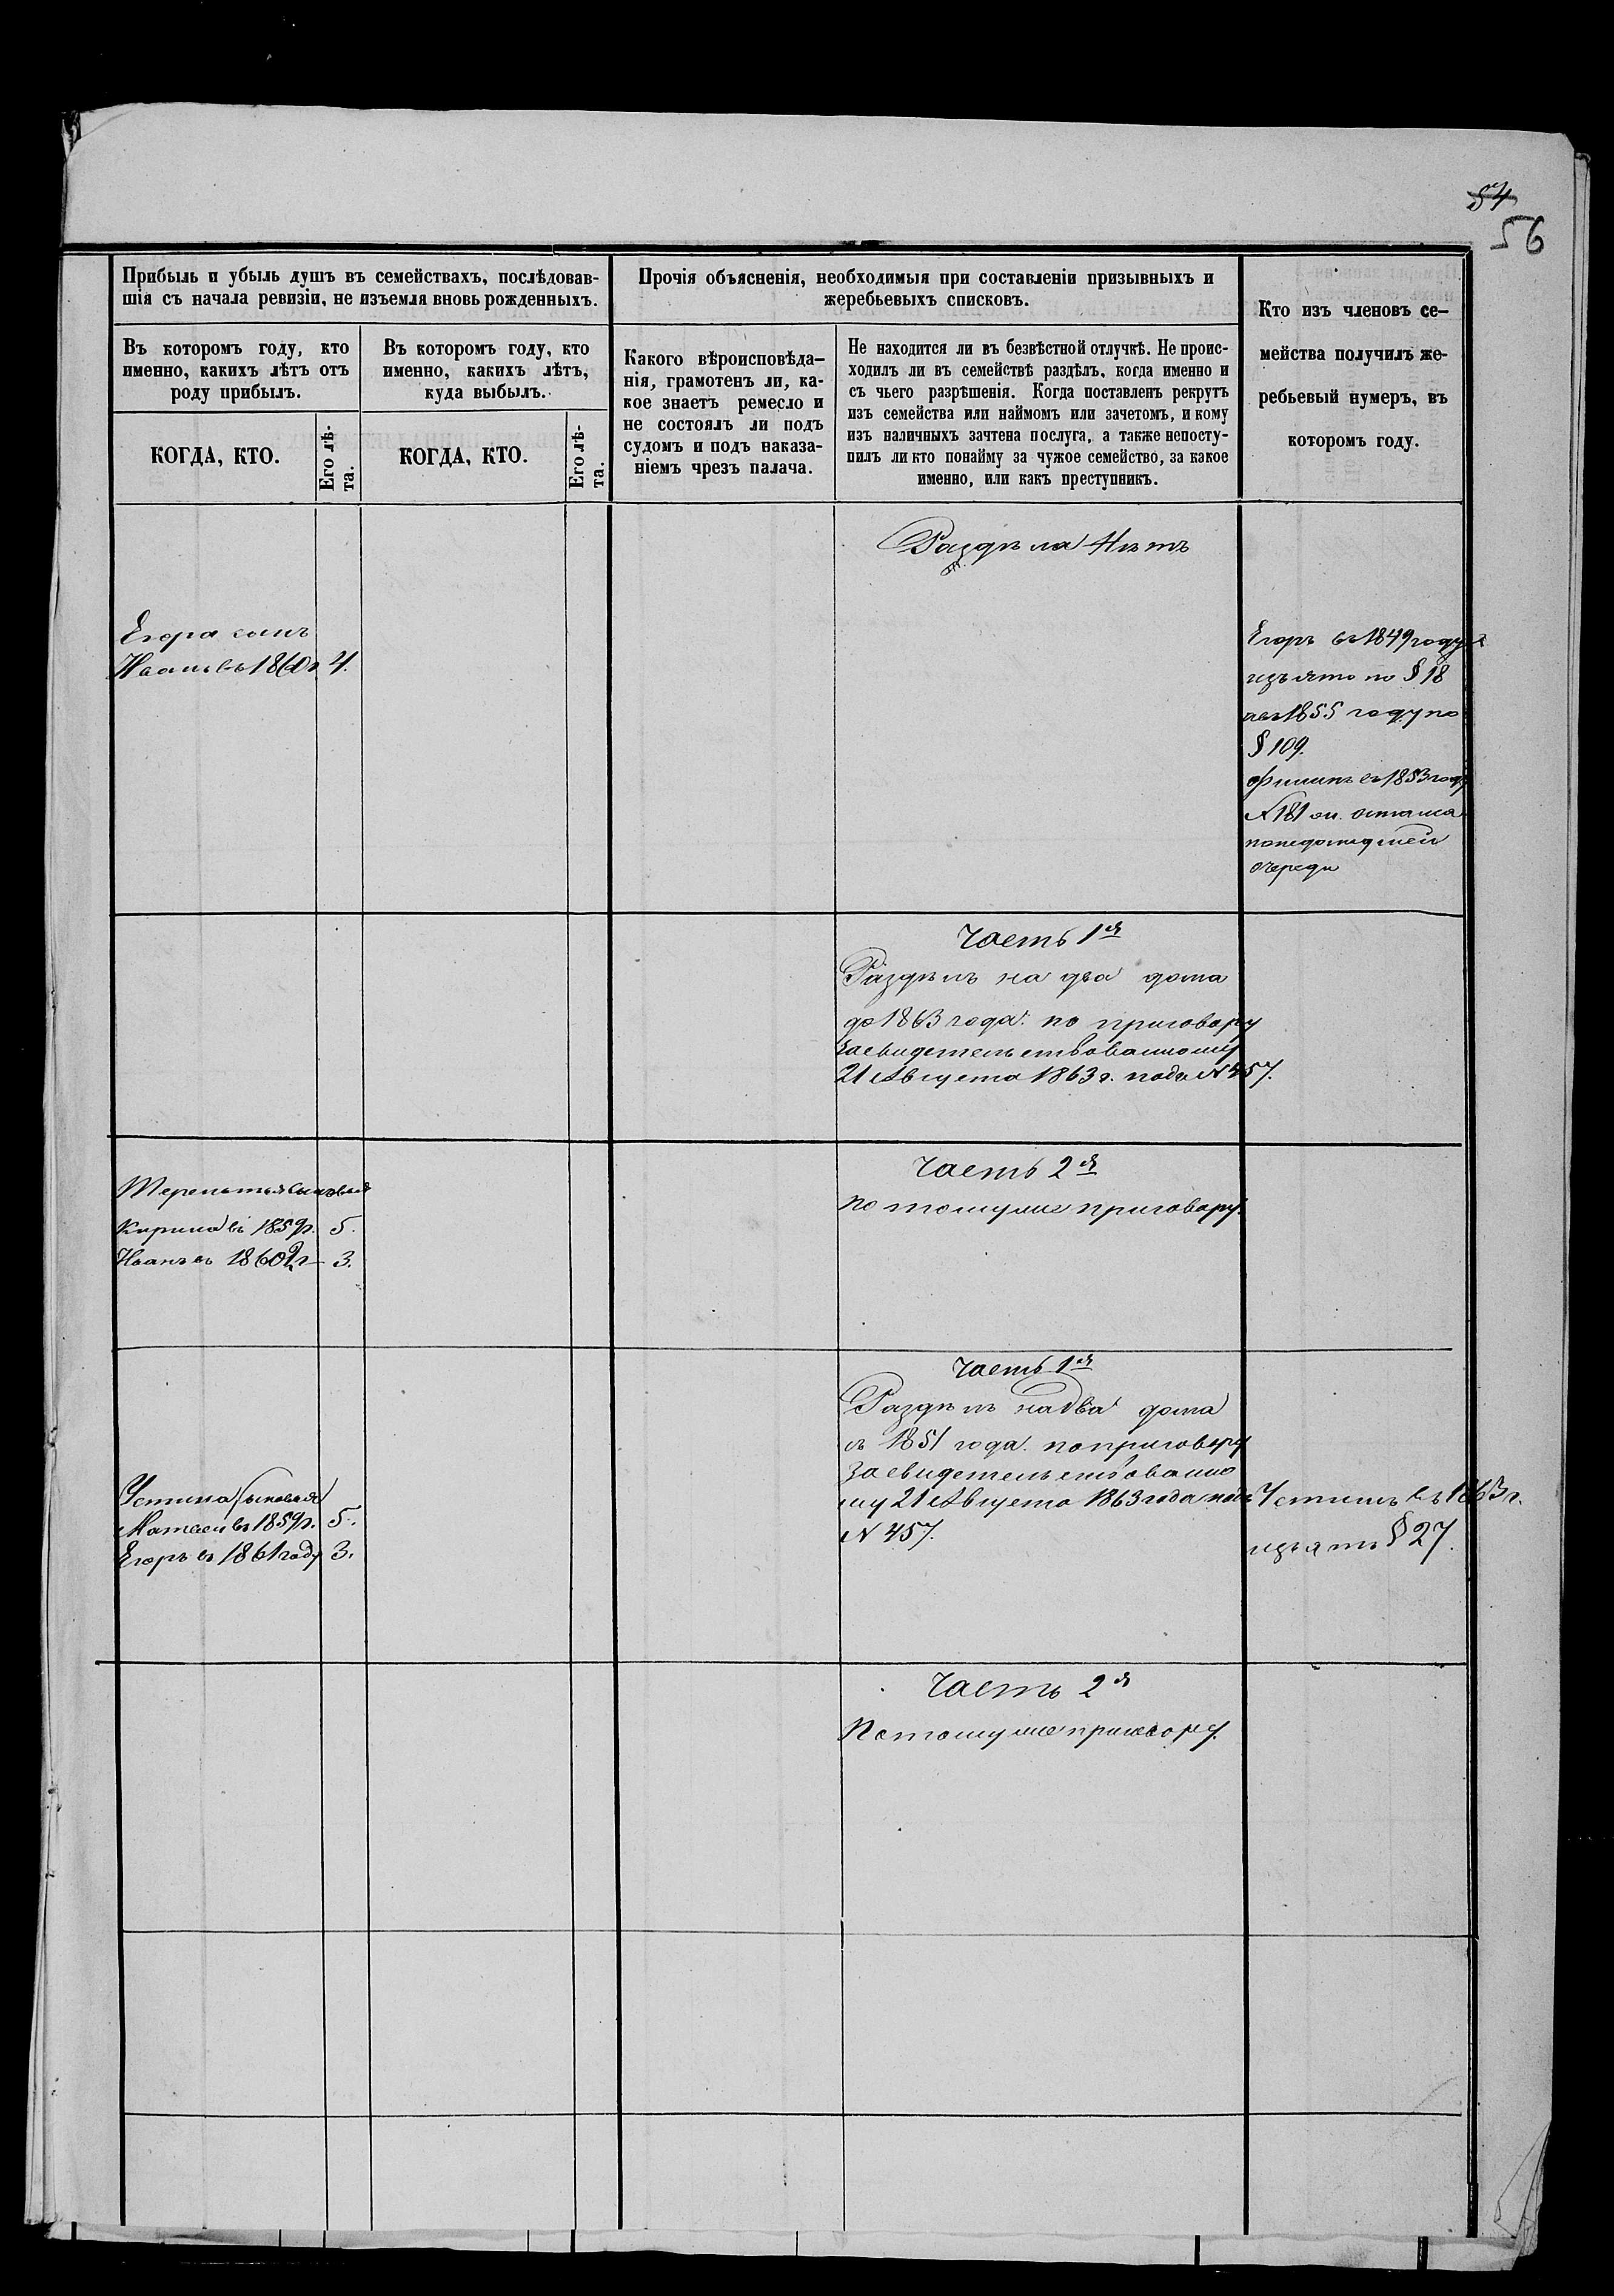 54
56
Прибыль и убыль душъ въ семействахъ, послѣдовав-
шія съ начала ревизіи, не изъемля вновь рожденныхъ.
Въ которомъ году, кто
именно, какихъ лѣтъ отъ
роду прибылъ.
Въ которомъ году, кто
именно, какихъ лѣтъ,
куда выбылъ.
КОГДА, КТО.
Его лѣ-
та.
КОГДА, КТО.
Его лѣ-
та.
Прочія объясненія, необходимыя при составленіи призывныхъ и
жеребьевыхъ списковъ.
Какого вѣроисповѣда-
нія, грамотенъ ли, ка-
кое знаетъ ремесло и
не состоялъ ли подъ
судомъ и подъ наказа-
ніемъ чрезъ палача.
Не находится ли въ безвѣстной отлучкѣ. Не проис-
ходилъ ли въ семействѣ раздѣлъ, когда именно и
съ чьего разрѣшенія. Когда поставленъ рекрутъ
изъ семейства или наймомъ или зачетомъ, и кому
изъ наличныхъ зачтена послуга, а также непосту-
пилъ ли кто понайму за чужое семейство, за какое
именно, или какъ преступникъ.
Кто изъ членовъ се-
мейства получилъ же-
ребьевый нумеръ, въ
которомъ году.
Раздѣла Нѣтъ
Егора сынъ
Иванъ въ 1860 г 4.
Егоръ въ 1849 году
изъято по § 18
а въ 1855 году по
§ 109.
Филипъ въ 1853 году
№ 181 осталса
понедошедшей
очереди
Часть 1я
Раздѣлъ на два дома
до 1863 года. по приговору
засвидетельствованному
21 Августа 1863 г. подъ № 457.
Терентья сыновья
Кирила въ 1859 г. 5.
Иванъ въ 1860 г 3.
Часть 2я
по томуже приговору.
Часть 1я
Раздѣлъ на два дома
съ 1851 года. по приговору
засвидетельствованно
му 21 Августа 1863 года подъ
№ 457.
Устина сыновья
Матвей въ 1859 г. 5.
Егоръ въ 1861 году 3.
Устинъ въ 1863 г.
изъятъ § 27.
Часть 2я
Потомуже приговору.